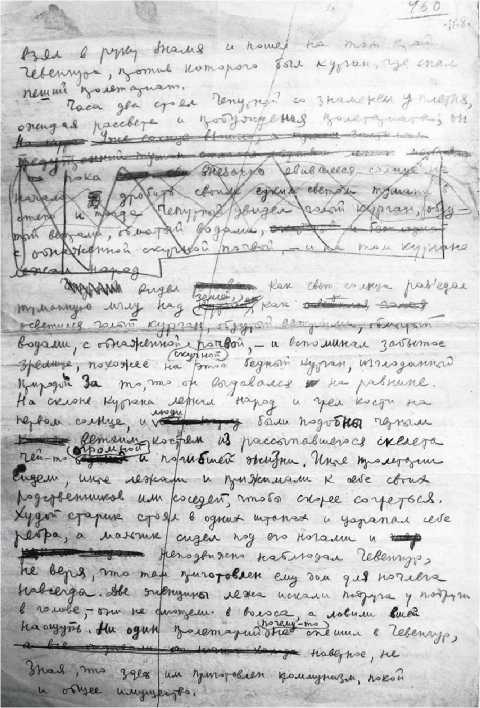 430
взял в руку знамя и пошел на тот край
Чевенгура, против которого был курган, где спал
пеший пролетариат.
Часа два стоял Чепурный со знаменем у плетня,
ожидая рассвета и пробуждения пролетариата; он
дробить своим сухим светом туман
и тогда Чепурный увидел голый курган, обду-
тый ветрами, обмытый водами,
с обнаженной скучной почвой, — и на том кургане
лежал народ
видел как свет солнца разъедал
туманную мглу над землей, как
осветился голый курган, обдутый ветрами, обмытый
водами, с обнаженной скучной почвой, — и вспоминал забытое
зрелище, похожее на этот бедный курган, изглоданный
природой за то, что он выдавался на равнине.
На склоне кургана лежал народ и грел кости на
первом солнце, и люди были подобны черным
ветхим костям из рассыпавшегося скелета
чьей-то огромной и погибшей жизни. Иные пролетарии
сидели, иные лежали и прижимали к себе своих
родственников или соседей, чтобы скорее согреться.
Худой старик стоял в одних штанах и царапал себе
ребра, а мальчик сидел под его ногами и
неподвижно наблюдал Чевенгур,
не веря, что там приготовлен ему дом для ночлега
навсегда. Две женщины лежа искали подруга у подруги
в голове, — они не смотрели в волоса, а ловили вшей
на ощупь. Ни один пролетарий почему-то не спешил в Чевенгур,
наверное, не
зная, что здесь им приготовлен коммунизм, покой
и общее имущество.